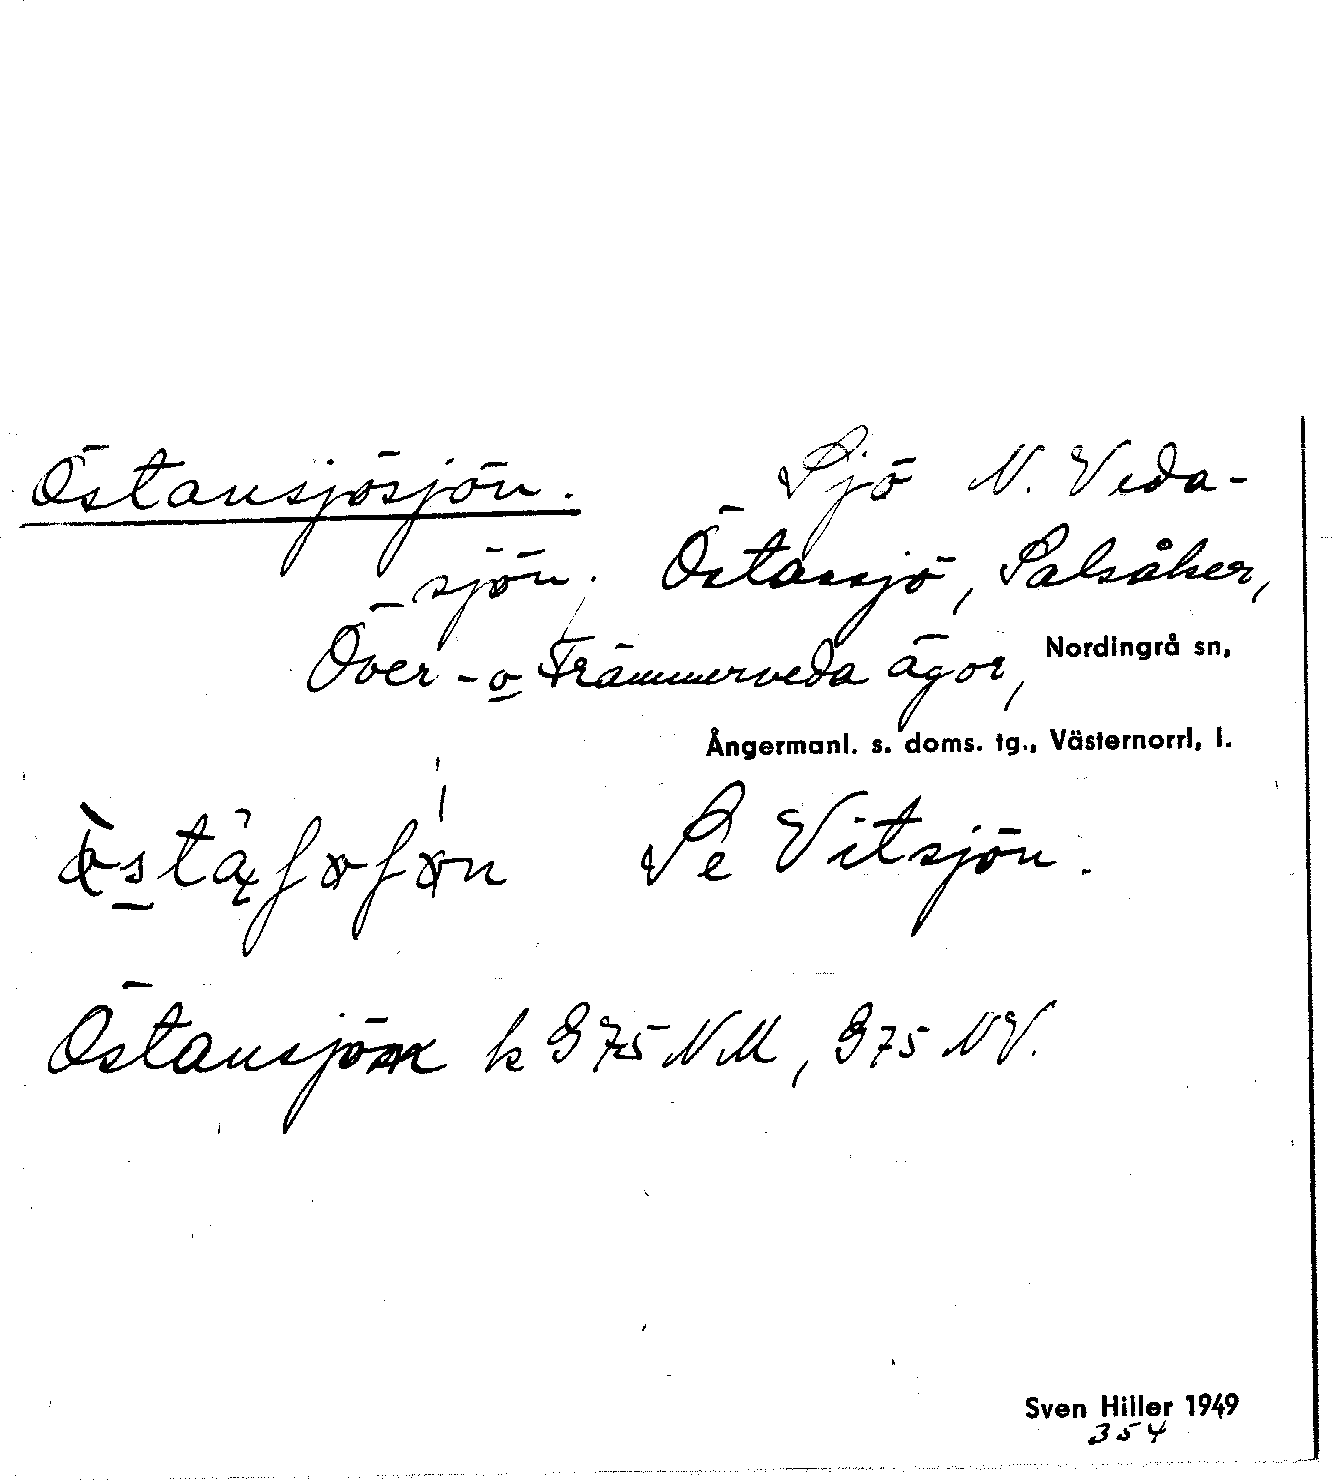 Östansjösjön. Sjö N. Veda-
sjön. Östansjö, Salsåker,
Över- o Främmerveda ägor, Nordingrå sn,
Ångermanl. s. doms. tg., Västernorrl, l.
Se Vitsjön.
Östansjön k G 75 NM, G 75 NV.
Sven Hiller 1949
354